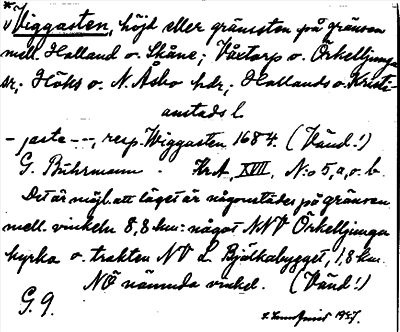 * v Viggasten, höjd eller gränssten på gränsen
mell. Halland o. Skåne; Våxtorp o. Örkelljunga
sr; Höks o. N. Åsbo hdr; Hallands o. Kristi-
anstads l.
- jaste - - -, resp. Wiggasten 1684. (Vänd!)
G. Buhrmann. KrA, XVII, N:o 5, a, o. b.
Det är möjl. att läget är någonstädes på gränsen
mell. vinkeln 8,8 km: något NNV Örkelljunga
kyrka o. trakten NV L. Bjälkabygget, 1,8 km
NÖ nämnda vinkel. (Vänd!)
G. 9. 1937.